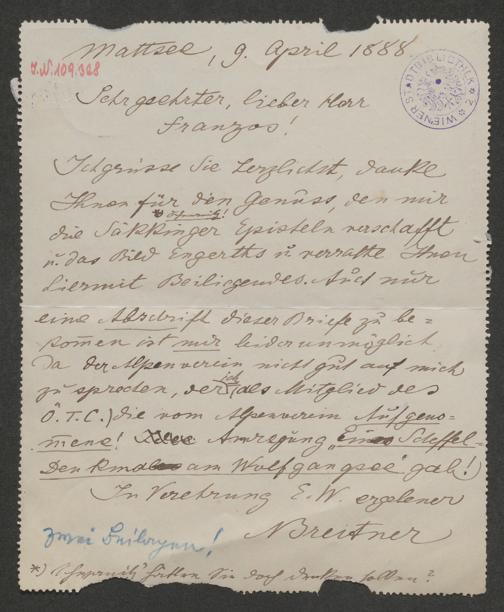 Mattsee, 9. April 1888
I.N. 109.368
WIENER STADTBIBLIOTHEK
Sehrgeehrter, lieber Herr
Franzos!
Ich grüsse Sie herzlichst, danke
Ihnen für den Genuss, den mir
die Säkkinger Episteln verschafft
u. das Bild Engerths u. verrathe Ihnen
hiermit Beiliegendes. Auch nur
eine Abschrift dieser Briefe zu be=
kommen ist mir leider unmöglich
da der Alpenverein nicht gut auf mich
zu sprechen, der ich (als Mitglied des
Ö.T.C.) die vom Alpenverein Aufgeno=
mene! Anregung "Eines Scheffel-
Denkmals am Wolfgangsee" gab!)
In Verehrung E. W. ergebener
NBreitner
zwei Beilagen!
*) hätten Sie doch drucken sollen?